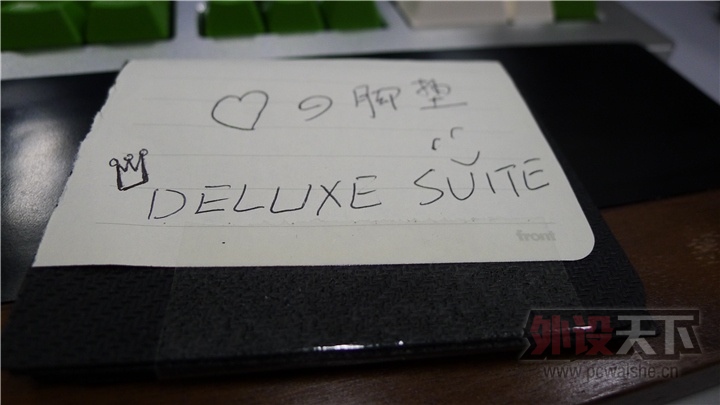 ♡の脚垫
DELUXE SUITE
front
外设天下
www.pcwaishe.cn